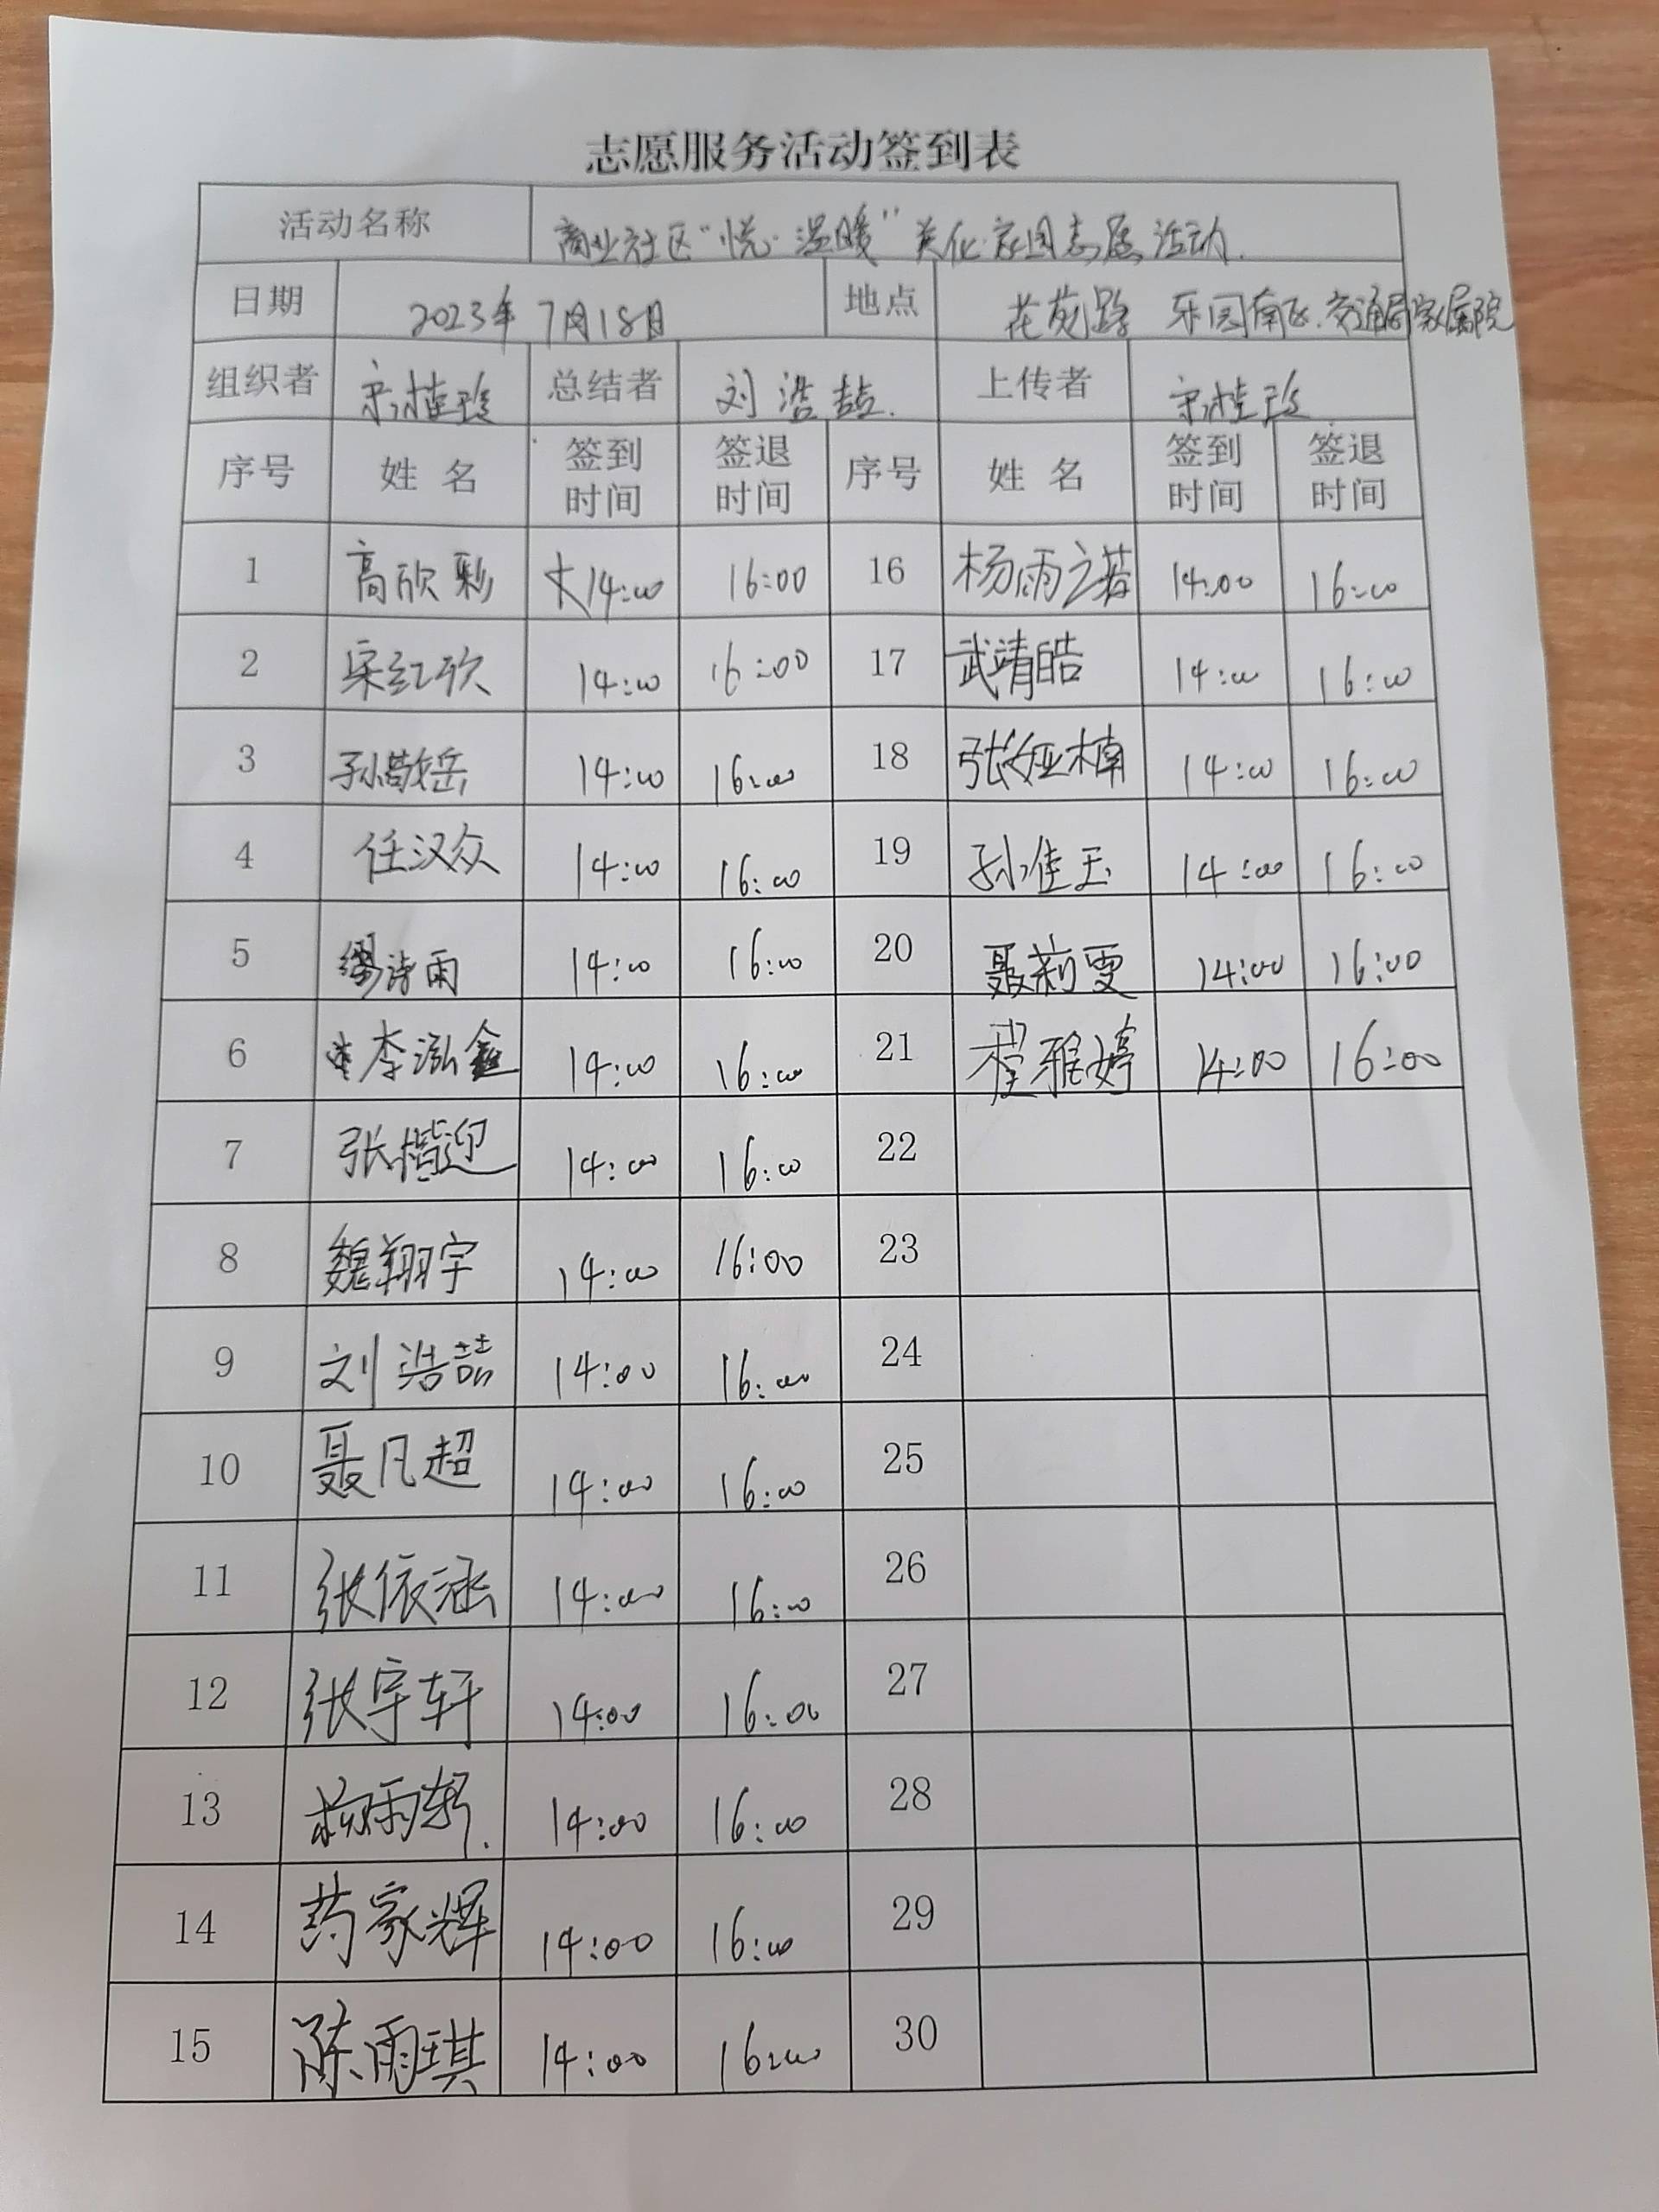 志愿服务活动签到表
活动名称 商业社区“悦·温暖”美化家园志愿活动.
日期 2023年7月18日 地点 花苑路 乐园南区.交通局家属院
组织者 总结者 刘浩喆. 上传者
序号 姓名 签到时间 签退时间 序号 姓名 签到时间 签退时间
1 高欣彩 14:00 16:00 16 杨雨之若 14:00 16:00
2 宋红欣 14:00 16:00 17 武靖皓 14:00 16:00
3 孙敬岳 14:00 16:00 18 张娅楠 14:00 16:00
4 任汉众 14:00 16:00 19 孙佳玉 14:00 16:00
5 诗雨 14:00 16:00 20 聂莉雯 14:00 16:00
6 李泓鑫 14:00 16:00 21 程雅婷 14:00 16:00
7 张楷迎 14:00 16:00 22
8 魏翔宇 14:00 16:00 23
9 刘浩喆 14:00 16:00 24
10 聂凡超 14:00 16:00 25
11 张依涵 14:00 16:00 26
12 张宇轩 14:00 16:00 27
13 杨雨轩. 14:00 16:00 28
14 药家辉 14:00 16:00 29
15 陈雨琪 14:00 16:00 30